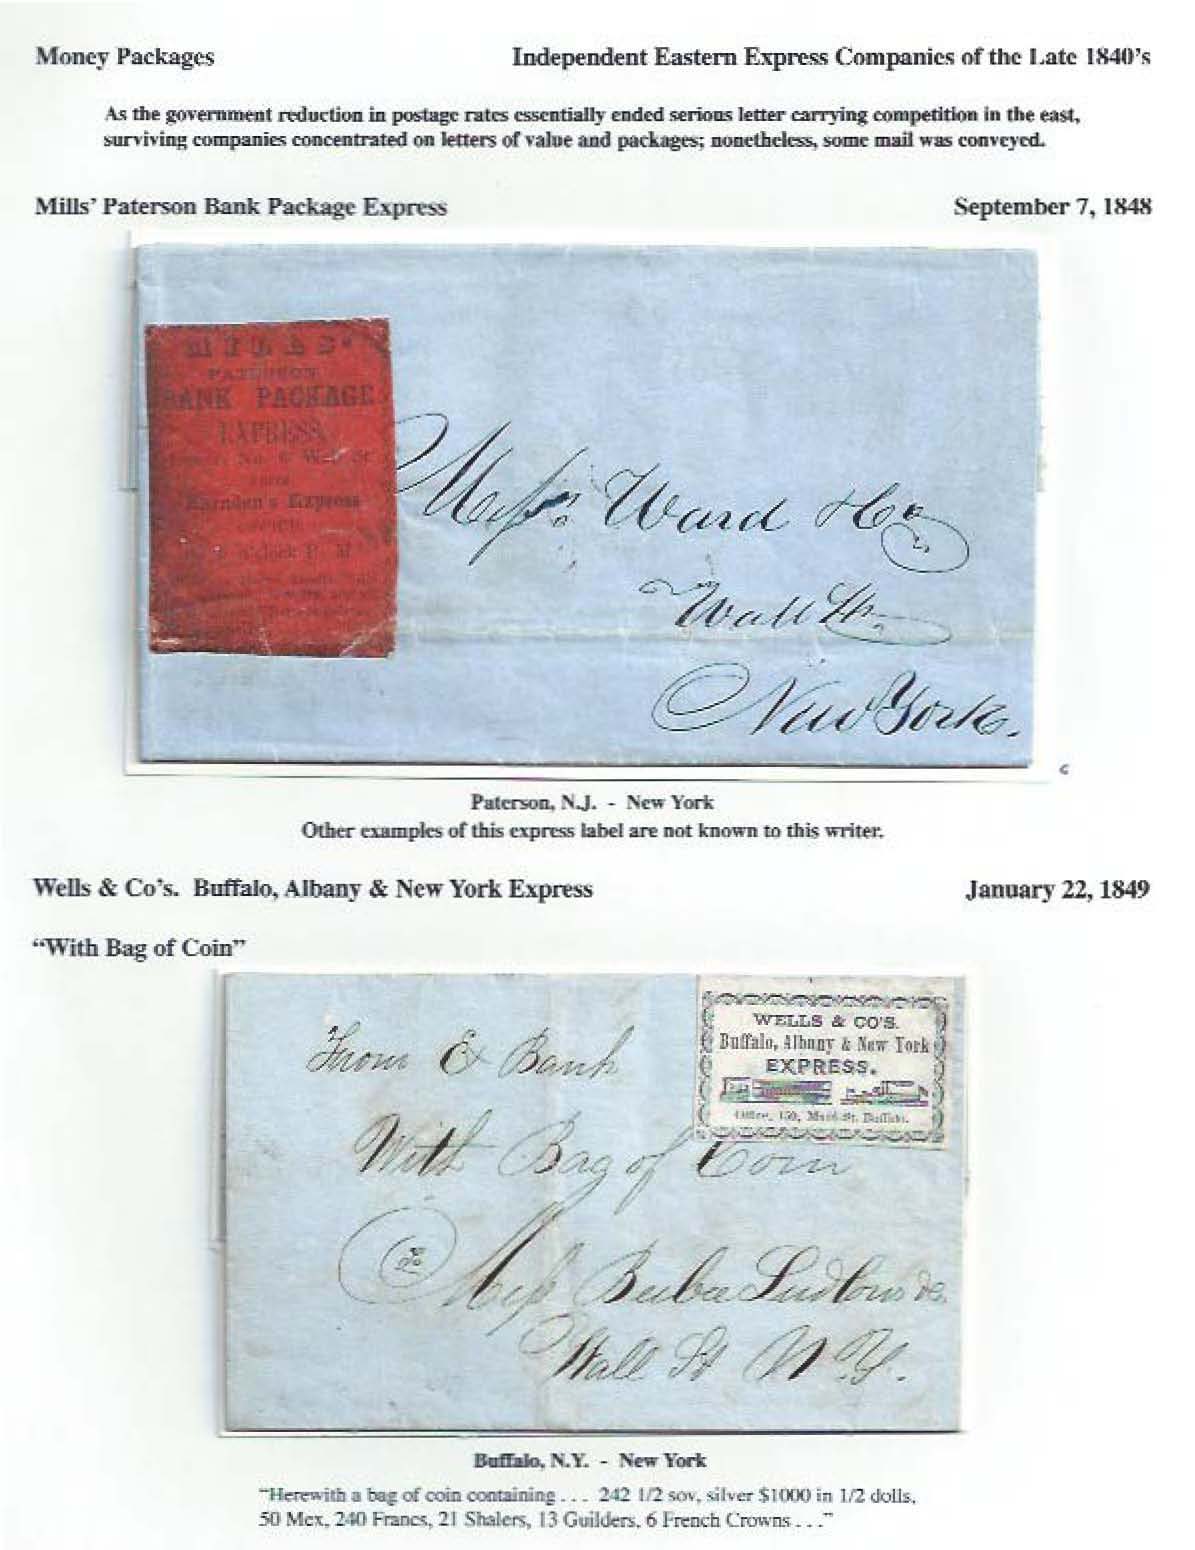 Money Packages
Independent Eastern Express Companies of the Late 1840's
As the government reduction in postage rates essentially ended serious letter carrying competition in the east,
surviving companies concentrated on letters of value and packages; nonetheless, some mail was conveyed.
Mills' Paterson Bank Package Express
September 7, 1848
MILLS'
PATERSON
BANK PACKAGE
EXPRESS,
Harnden's Express
OFFICE
o'clock P. M.
Messrs. Ward & Co
Wall St.
New York.
Paterson, N.J. - New York
Other examples of this express label are not known to this writer.
Wells & Co's. Buffalo, Albany & New York Express
January 22, 1849
"With Bag of Coin"
WELLS & CO'S.
Buffalo, Albany & New York
EXPRESS.
Office, 150, Main St. Buffalo.
From Ex Bank
With Bag of Coin
To
Mess Beebee Ludlow &c.
Wall St N.Y.
Buffalo, N.Y. - New York
"Herewith a bag of coin containing . . . 242 1/2 sov, silver $1000 in 1/2 dolls,
50 Mex, 240 Francs, 21 Shalers, 13 Guilders, 6 French Crowns . . ."